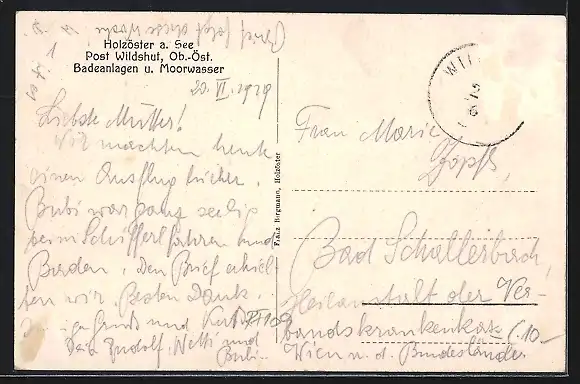 Brief folgt diese Woche
Holzöster a. See
Post Wildshut, Ob.-Öst.
Badeanlagen u. Moorwasser
20. VI. 1929
Liebste Mutter!
Wir machten heute
einen Ausflug hieher.
Bubi war ganz selig
beim Schifferlfahren und
Baden, den Brief erhiel-
ten wir. Besten Dank.
Grüße und Kuß
Dein Rudolf, Netti und
Bubi
Franz Birgmann, Holzöster
WIL
Frau Marie
Zopfl,
Bad Schallerbach,
Heilanstalt der Ver-
bandskrankenkasse
Wien u. d. Bundesländer